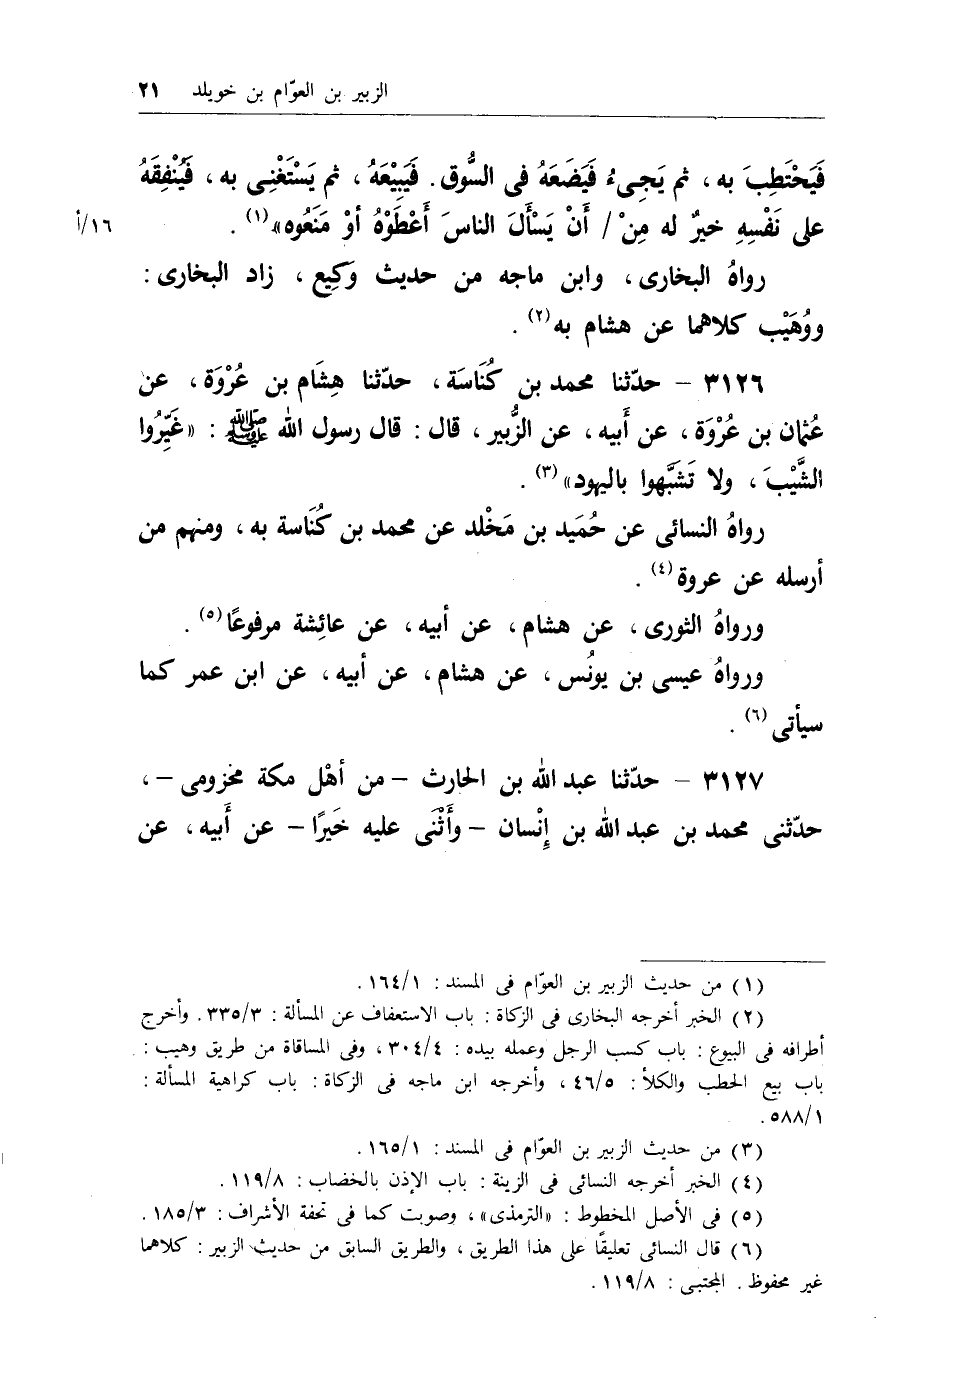 الزبير بن العوّام بن خويلد ٢١
فَيَحْتَطِبَ به ، ثم يَجِىءُ فَيَضَعَهُ فى السُّوق . فَيَبِيْعَهُ ، ثم يَسْتَغْنِى به ، فَيُنْفِقَهُ
على نَفْسِهِ خيرٌ له مِنْ / أَنْ يَسْأَلَ الناسَ أَعْطَوْهُ أوْ مَنَعُوه»(١) .
١٦/أ
رواهُ البخارى ، وابن ماجه من حديث وَكِيع ، زاد البخارى :
ووُهَيْب كلاهما عن هشام به(٢) .
٣١٢٦ – حدّثنا محمد بن كُنَاسَة ، حدّثنا هِشَام بن عُرْوَة ، عن
عُثمان بن عُرْوَة ، عن أَبيه ، عن الزُّبير ، قال : قال رسول الله ﷺ : «غَيِّرُوا
الشَّيْبَ ، ولا تَشَبَّهوا باليهود»(٣) .
رواهُ النسائى عن حُمَيد بن مَخْلد عن محمد بن كُنَاسة به ، ومنهم من
أرسله عن عروة(٤) .
ورواهُ الثورى ، عن هشام ، عن أبيه ، عن عائِشة مرفوعًا(٥) .
ورواهُ عيسى بن يونُس ، عن هشام ، عن أبيه ، عن ابن عمر كما
سيأتى(٦) .
٣١٢٧ – حدّثنا عبد الله بن الحارث – من أهْل مكة مخزومى – ،
حدّثنى محمد بن عبد الله بن إِنْسان – وأَثْنَى عليه خَيرًا – عن أَبيه ، عن
(١) من حديث الزبير بن العوّام فى المسند : ١٦٤/١ .
(٢) الخبر أخرجه البخارى فى الزكاة : باب الاستعفاف عن المسألة : ٣٣٥/٣ . وأخرج
أطرافه فى البيوع : باب كسب الرجل وعمله بيده : ٣٠٤/٤ ، وفى المساقاة من طريق وهيب :
باب بيع الحطب والكلأ : ٤٦/٥ ، وأخرجه ابن ماجه فى الزكاة : باب كراهية المسألة :
٥٨٨/١ .
(٣) من حديث الزبير بن العوّام فى المسند : ١٦٥/١ .
(٤) الخبر أخرجه النسائى فى الزينة : باب الإذن بالخضاب : ١١٩/٨ .
(٥) فى الأصل المخطوط : «الترمذى» ، وصوبت كما فى تحفة الأشراف : ١٨٥/٣ .
(٦) قال النسائى تعليقًا على هذا الطريق ، والطريق السابق من حديث الزبير : كلاهما
غير محفوظ . المجتبى : ١١٩/٨ .